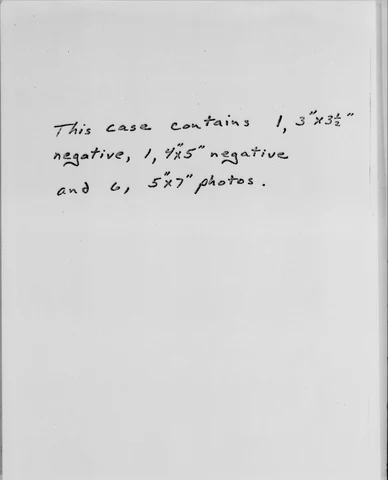 This case contains 1, 3"x3½"
negative, 1, 4"x5" negative
and 6, 5"x7" photos.